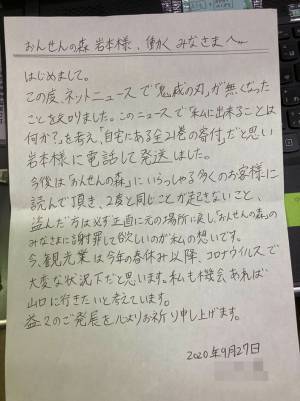 おんせんの森 岩本様、働くみなさまへ
はじめまして。
この度、ネットニュースで「鬼滅の刃」が無くなった
ことを知りました。このニュースで「私に出来ることは
何か?」を考え「自宅にある全21巻の寄付」だと思い
岩本様に電話して発送しました。
今後は「おんせんの森」にいらっしゃる多くのお客様に
読んで頂き、2度と同じことが起きないこと、
盗んだ方は必ず正直に元の場所に戻し「おんせんの森」の
みなさまに謝罪して欲しいのが私の想いです。
今、観光業は今年の春休み以降、コロナウイルスで
大変な状況下だと思います。私も機会あれば
山口に行きたいと考えています。
益々のご発展を心よりお祈り申し上げます。
2020年9月27日